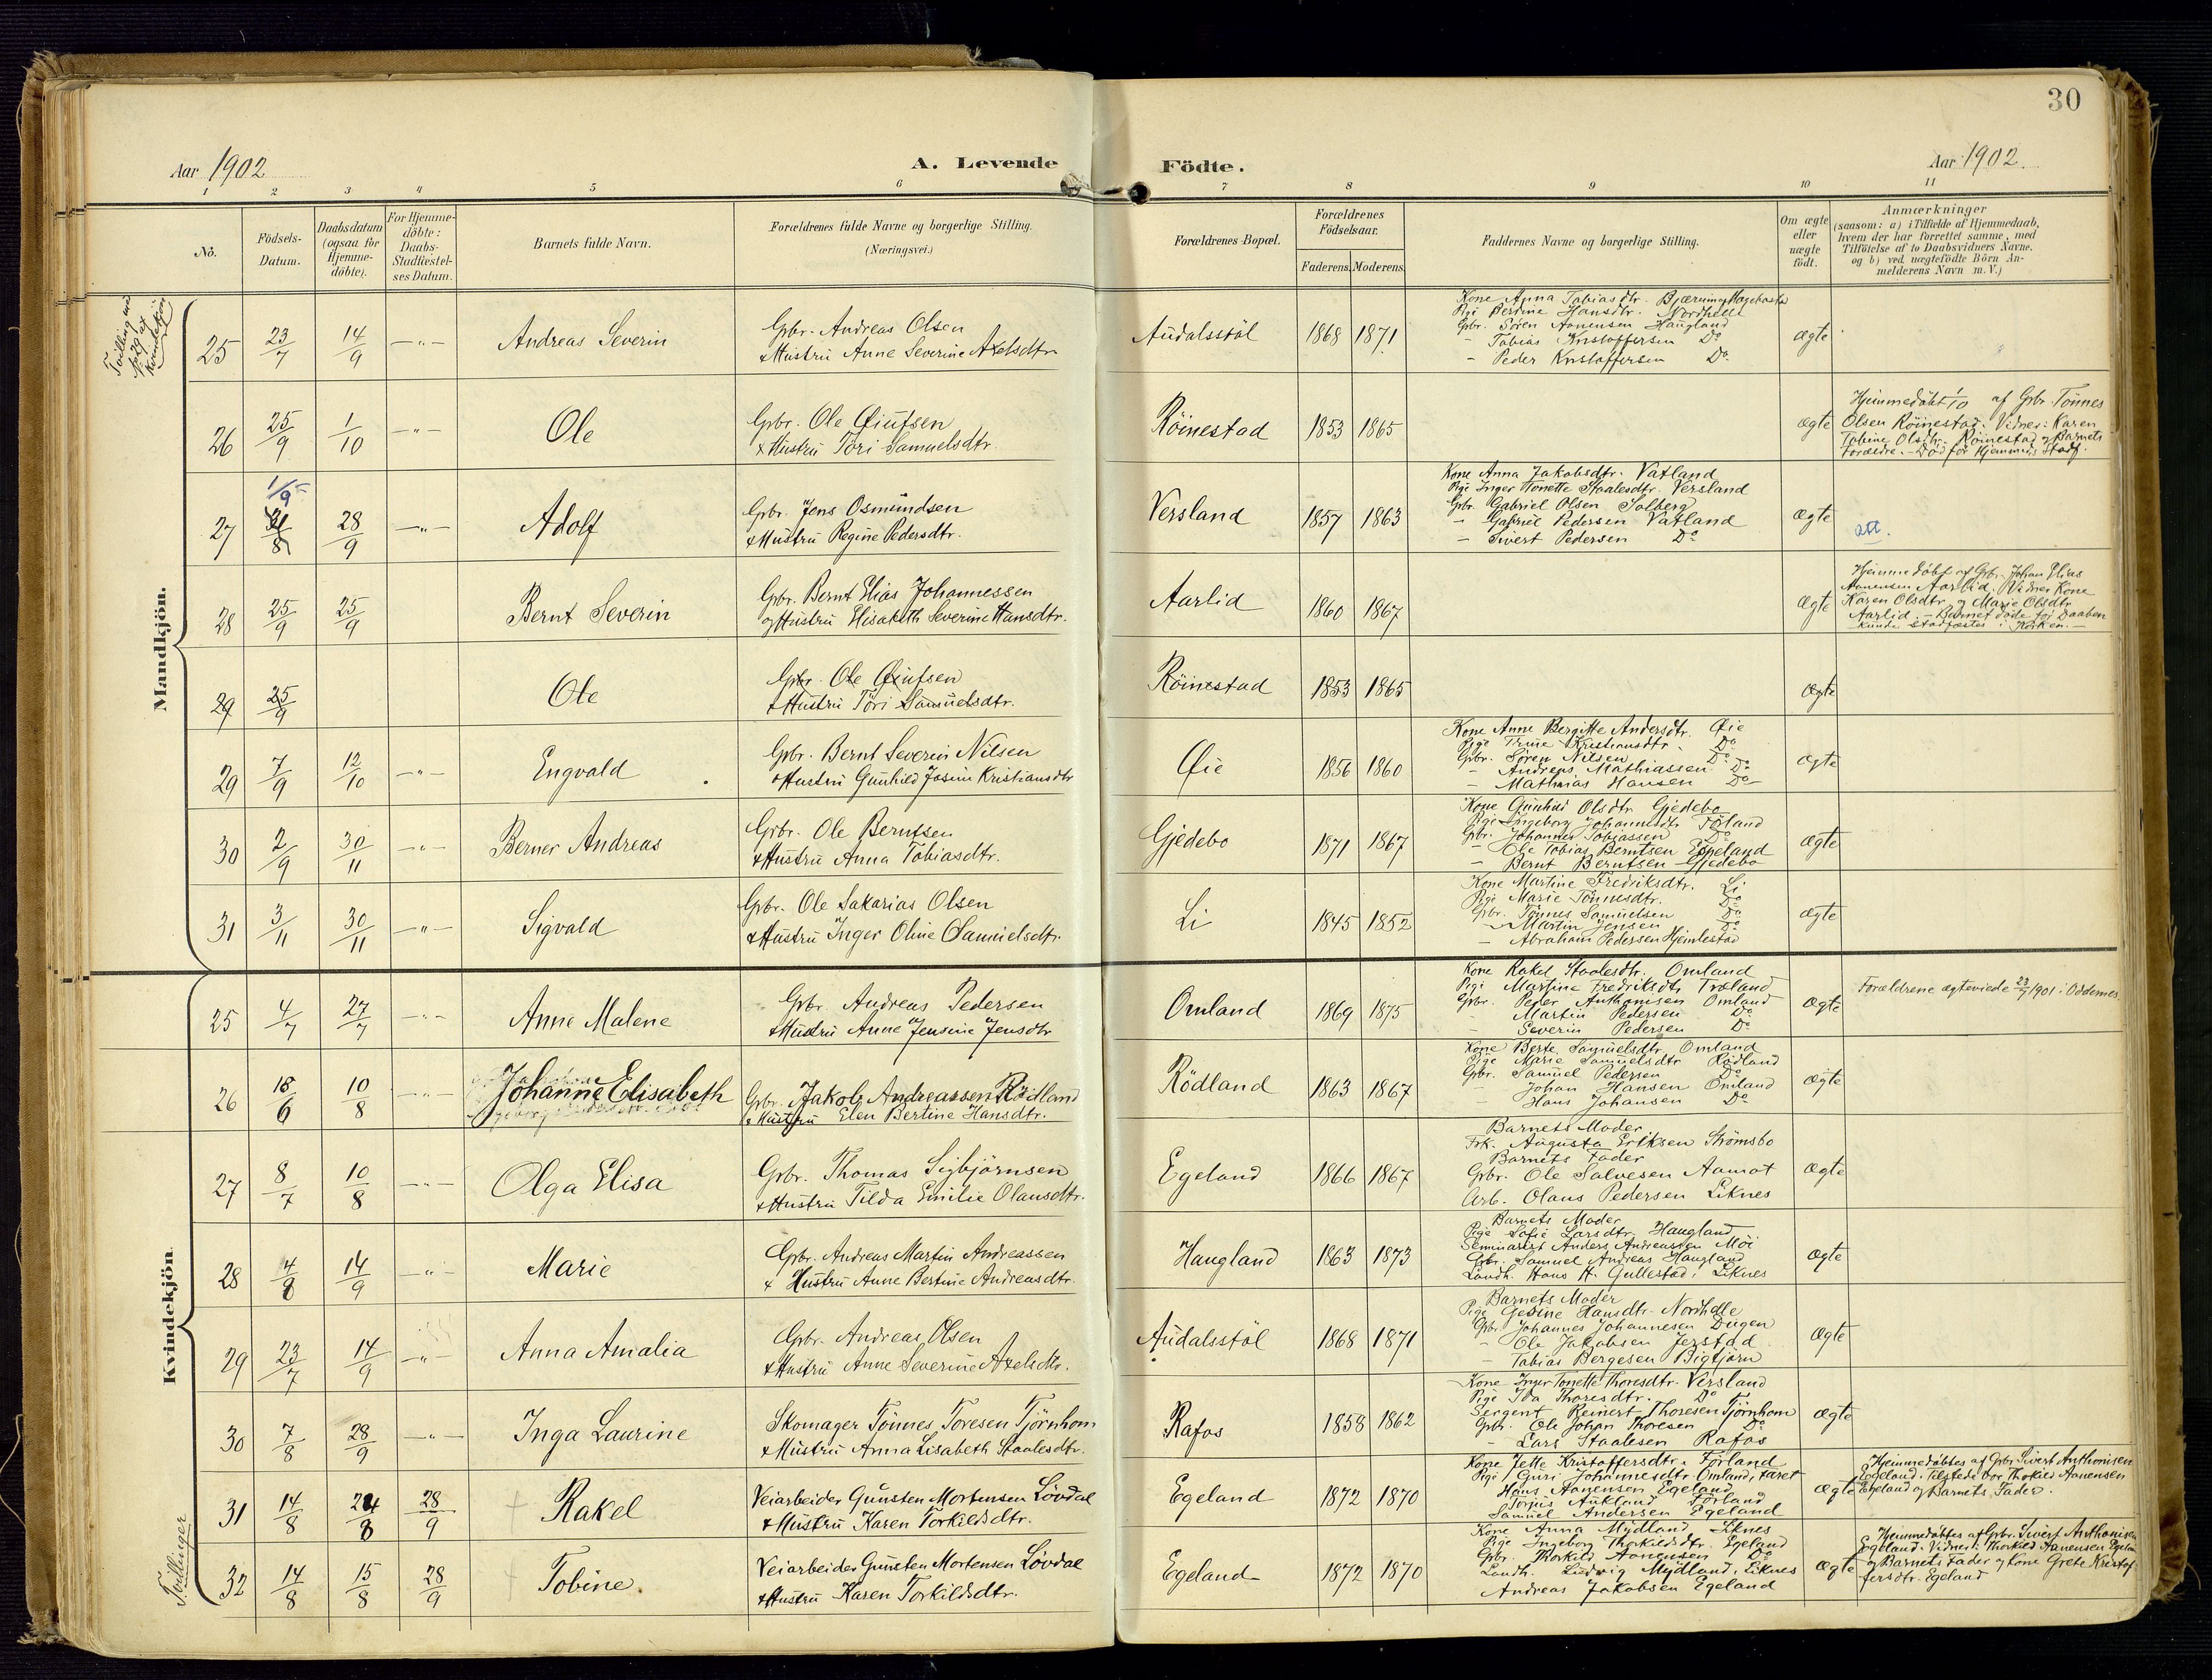 30
Aar 1902
A. Levende Födte.
Aar 1902.
1 2 3 4 5 6 7 8 9 10 11
No.
Födsels-
Datum.
Daabsdatum
(ogsaa for
Hjemme-
döbte).
For Hjemme-
döbte:
Daabs-
Stadfæstel-
ses Datum.
Barnets fulde Navn.
Forældrenes fulde Navne og borgerlige Stilling.
(Næringsvei.)
Forældrenes Bopæl.
Forældrenes
Födselsaar.
Faderens. Moderens.
Faddernes Navne og borgerlige Stilling.
Om ægte
eller
uægte
födt.
Anmærkninger
(saasom: a) i Tilfælde af Hjemmedaab,
hvem der har forrettet samme, med
Tilföielse af to Daabsvidners Navne,
og b) ved uægtefödte Börn An-
melderens Navn m. V.)
Mandkjön.
Tvilling med
No 29 af
Kvindekjön
25 23/7 14/9 —"— Andreas Severin
Gbr. Andreas Olsen
& Hustru Anne Severine Axelsdtr
Audalsstöl 1868 1871
Kone Anna Tobiasdtr.
Pige Bertine Hansdtr. Nordhelle
Gbr. Sören Aanensen Haugland
- Tobias Kristoffersen Do
- Peder Kristoffersen Do
ægte
26 25/9 1/10 —"— Ole
Gbr. Ole
& Hustru Tori Samuelsdtr.
Röinestad 1853 1865
ægte
Hjemmedöbt 1/10 af Gbr. Tönnes
Olsen Röinestad. Vidner: Karen
Tobine Olsdtr. Röinestad og Barnets
Forældre. - Död för Hjemmed. Stadf.
27 1/9 31/8 28/9 —"— Adolf
Gbr. Jens Osmundsen
& Hustru Regine Pedersdtr.
Versland 1857 1863
Kone Anna Jakobsdtr. Vatland
Pige Inger Tonette Staalesdtr. Versland
Gbr. Gabriel Olsen Solberg
- Gabriel Pedersen Vatland
- Sivert Pedersen Do
ægte
att.
28 25/9 25/9 Bernt Severin
Gbr. Bernt Elias Johannessen
og Hustru Elisabeth Severine Hansdtr.
Aarlid 1860 1867
ægte
Hjemmedöbt af Gbr. Johan Elias
Aanensen Aarlid. Vidner Kone
Karen Olsdtr. og Marie Olsdtr.
Aarlid. - Barnet döde för Daaben
kunde stadfæstes i Kirken. -
29 25/9 Ole
Gbr. Ole
& Hustru Tori Samuelsdtr.
Röinestad 1853 1865
ægte
29 7/9 12/10 —"— Engvald
Gbr. Bernt Severin Nilsen
& Hustru Gunhild Josine Kristiansdtr
Öie 1856 1860
Kone Anne Bergitte Andersdtr. Öie
Pige Trine Kristiansdtr. Do
Gbr. Sören Nilsen Do
- Andreas Mathiassen Do
- Mathias Hansen Do
ægte
30 2/9 30/11 —"— Berner Andreas
Gbr. Ole Berntsen
& Hustru Anna Tobiasdtr.
Gjedebo 1871 1867
Kone Gunhild Olsdtr. Gjedebo
Pige Ingeborg Johannesdtr.
Gbr. Johannes Tobiassen Do
- Ole Tobias Berntsen Egeland
- Bernt Berntsen Gjedebo
ægte
31 3/11 30/11 —"— Sigvald
Gbr. Ole Sakarias Olsen
& Hustru Inger Oline Samuelsdtr.
Li 1845 1852
Kone Martine Fredriksdtr. Li
Pige Marie Tönnesdtr. Do
Gbr. Tönnes Samuelsen Do
- Martin Jensen Do
- Abraham Pedersen Hjemlestad
ægte
Kvindekjön
25 4/7 27/7 —"— Anne Malene
Gbr. Andreas Pedersen
& Hustru Anne Jensine Jensdtr
Omland 1869 1875
Kone Rakel Staalesdtr. Omland
Pige Martine Fredriksdtr. Træland
Gbr. Peder Anthonisen Omland
- Martin Pedersen Do
- Severin Pedersen Do
ægte
Forældrene ægteviede 23/7 1901 i Oddernes.
26 18/6 10/8 —"— Johanne Elisabeth
Gbr. Jakob Andreassen Rödland
& Hustru Elen Bertine Hansdtr.
Rödland 1863 1867
Kone Berte Samuelsdtr. Omland
Pige Marie Samuelsdtr. Rödland
Gbr. Samuel Pedersen Do
- Johan Hansen Omland
- Hans Johansen Do
ægte
27 8/7 10/8 —"— Olga Elisa
Gbr. Thomas Sigbjörnsen
& Hustru Tilda Emilie Olausdtr.
Egeland 1866 1867
Barnets Moder
Frk. Augusta Eriksen Strömsbo
Barnets Fader
Gbr. Ole Salvesen Aamot
Arb. Olaus Pedersen Liknes
ægte
28 4/8 14/9 —"— Marie
Gbr. Andreas Martin Andreassen
& Hustru Anne Bertine Andreasdtr.
Haugland 1863 1873
Barnets Moder
Pige Sofie Larsdtr. Haugland
Seminarist Anders Andreassen Moi
Gbr. Samuel Andreas Haugland
Landh. Hans H. Gullestad, Liknes
ægte
29 23/7 14/9 —"— Anna Amalia
Gbr. Andreas Olsen
& Hustru Anne Severine Axelsdtr.
Audalsstöl 1868 1871
Barnets Moder
Pige Gesine Hansdtr. Nordhelle
Gbr. Johannes Johannesen Dugen
- Ole Jakobsen Jerstad
- Tobias Bergesen Bigtjörn
ægte
30 7/8 28/9 —"— Inga Laurine
Skomager Tönnes Toresen Tjörnhom
& Hustru Anna Lisabeth Staalesdtr.
Rafos 1858 1862
Kone Inger Tonette Thoresdtr. Versland
Pige Ida Thoresdtr. Do
Sergent Reinert Thoresen Tjörnhom
Gbr. Ole Johan Thoresen Do
- Lars Staalesen Rafos
ægte
Tvillinger
31 14/8 24/8 28/9 Rakel
Veiarbeider Gunsten Mortensen Lövdal
& Hustru Karen Torkildsdtr.
Egeland 1872 1870
Kone Jette Kristoffersdtr. Förland
Pige Guri Johannesdtr Omland,
Hans Aanensen Egeland
Torjus Aukland Förland
Samuel Andersen Egeland
ægte
Hjemmedöbtes af Gbr. Sivert Anthonisen
Egeland. Tilstede var Thorkild Aanensen
Egeland og Barnets Fader.
32 14/8 15/8 28/9 Tobine.
Veiarbeider Gunsten Mortensen Lövdal
& Hustru Karen Torkildsdtr.
Egeland 1872 1870
Kone Anna Mydland Liknes
Pige Ingeborg Thorkildsdtr. Egeland
Gbr. Thorkild Aanensen Do
Landh. Ludvig Mydland, Liknes
Andreas Jakobsen Egeland
ægte
Hjemmedöbtes af Gbr. Sivert Anthonisen
Egeland. Vidner: Thorkild Aanensen Egeland
og Barnets Fader og Kone Grete Kristof-
fersdtr. Egeland